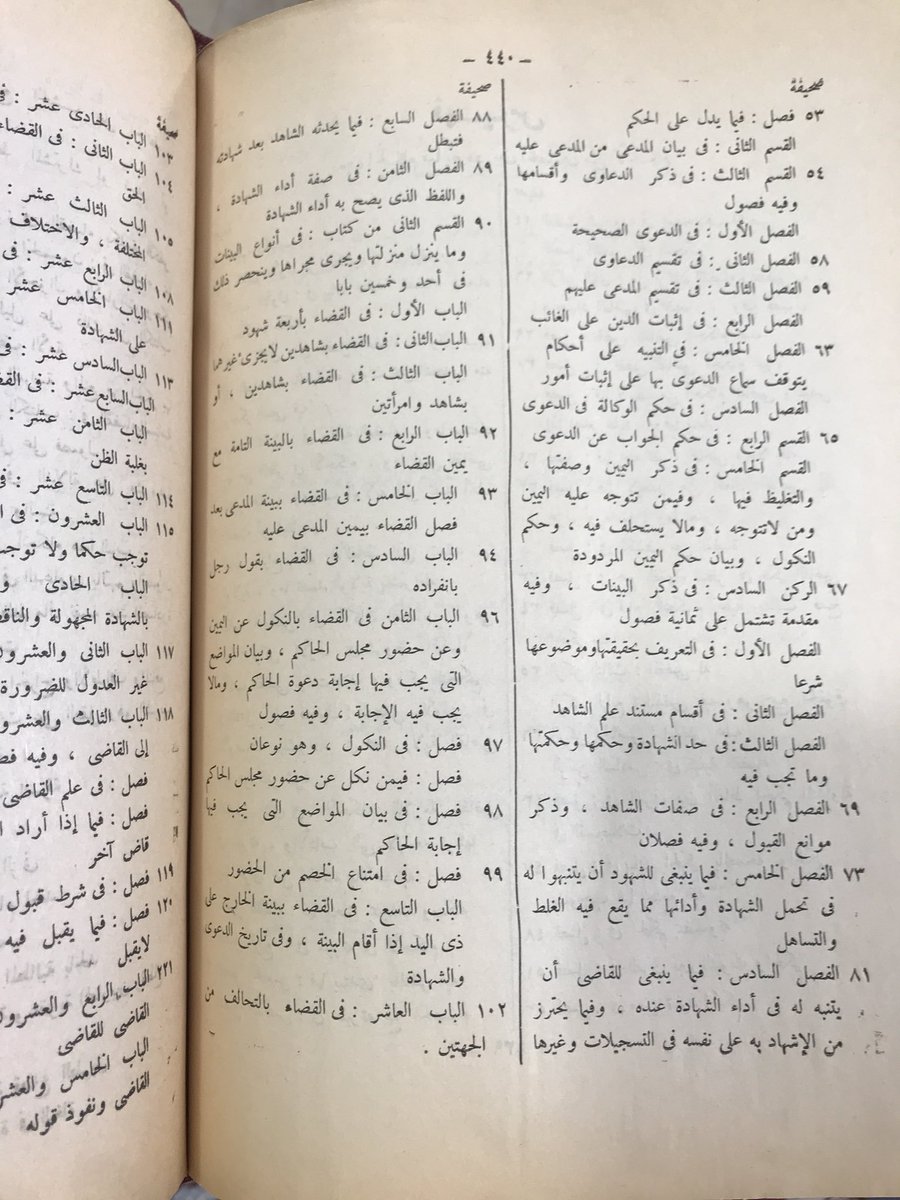 - ٤٤٠ -
صحيفة
٥٣ فصل : فيما يدل على الحكم
القسم الثانى : فى بيان المدعى من المدعى عليه
٥٤ القسم الثالث : فى ذكر الدعاوى وأقسامها
وفيه فصول
الفصل الأول : فى الدعوى الصحيحة
٥٨ الفصل الثانى : فى تقسيم الدعاوى
٥٩ الفصل الثالث : فى تقسيم المدعى عليهم
الفصل الرابع : فى إثبات الدين على الغائب
٦٣ الفصل الخامس : فى التنبيه على أحكام
يتوقف سماع الدعوى بها على إثبات أمور
الفصل السادس : فى حكم الوكالة فى الدعوى
٦٥ القسم الرابع : فى حكم الجواب عن الدعوى
القسم الخامس : فى ذكر اليمين وصفتها ،
والتغليظ فيها ، وفيمن تتوجه عليه اليمين
ومن لاتتوجه ، ومالا يستحلف فيه ، وحكم
النكول ، وبيان حكم اليمين المردودة
٦٧ الركن السادس : فى ذكر البينات ، وفيه
مقدمة تشتمل على ثمانية فصول
الفصل الأول : فى التعريف بحقيقتها وموضوعها
شرعا
الفصل الثانى : فى أقسام مستند علم الشاهد
الفصل الثالث : فى حد الشهادة وحكمها وحكمتها
وما تجب فيه
٦٩ الفصل الرابع : فى صفات الشاهد ، وذكر
موانع القبول ، وفيه فصلان
٧٣ الفصل الخامس : فيما ينبغى للشهود أن يتنبهوا له
فى تحمل الشهادة وأدائها مما يقع فيه الغلط
والتساهل
٨١ الفصل السادس : فيما ينبغى للقاضى أن
يتنبه له فى أداء الشهادة عنده ، وفيما يحترز
من الإشهاد به على نفسه فى التسجيلات وغيرها
صحيفة
٨٨ الفصل السابع : فيما يحدثه الشاهد بعد شهادته
فتبطل
٨٩ الفصل الثامن : فى صفة أداء الشهادة ،
واللفظ الذى يصح به أداء الشهادة
٩٠ القسم الثانى من كتاب : فى أنواع البينات
وما يتنزل منزلتها ويجرى مجراها وينحصر ذلك
فى أحد وخمسين بابا
الباب الأول : فى القضاء بأربعة شهود
٩١ الباب الثانى : فى القضاء بشاهدين لايجزئ غيرهما
الباب الثالث : فى القضاء بشاهدين ، أو
بشاهد وامرأتين
٩٢ الباب الرابع : فى القضاء بالبينة التامة مع
يمين القضاء
٩٣ الباب الخامس : فى القضاء ببينة المدعى بعد
فصل القضاء بيمين المدعى عليه
٩٤ الباب السادس : فى القضاء بقول رجل
بانفراده
٩٦ الباب الثامن فى القضاء بالنكول عن اليمين
وعن حضور مجلس الحاكم ، وبيان المواضع
التى يجب فيها إجابة دعوة الحاكم ، ومالا
يجب فيه الإجابة ، وفيه فصول
٩٧ فصل : فى النكول ، وهو نوعان
فصل : فيمن نكل عن حضور مجلس الحاكم
٩٨ فصل : فى بيان المواضع التى يجب فيها
إجابة الحاكم
٩٩ فصل : فى امتناع الخصم من الحضور
الباب التاسع : فى القضاء ببينة الخارج على
ذى اليد إذا أقام البينة ، وفى تاريخ الدعوى
والشهادة
١٠٢ الباب العاشر : فى القضاء بالتحالف من
الجهتين .
صحيفة
١٠٣ الباب الحادى عشر :
١٠٤ الباب الثانى : فى القضاء
الحق
١٠٥ الباب الثالث عشر :
المختلفة ، والاختلاف
١٠٨ الباب الرابع عشر : فى
١١١ الباب الخامس عشر
على الشهادة
١١٣ الباب السادس عشر :
الباب السابع عشر : فى
الباب الثامن عشر :
بغلبة الظن
١١٤ الباب التاسع عشر :
١١٥ الباب العشرون :
توجب حكما ولا
الباب الحادى
بالشهادة المجهولة
١١٧ الباب الثانى
غير العدول للضرورة
١١٨ الباب الثالث
إلى القاضى ، وفيه
فصل : فى علم القاضى
فصل : فيما إذا أراد
قاض آخر
١١٩ فصل : فى شرط قبول
١٢٠ فصل : فيما يقبل فيه
لايقبل
٢٢١ الباب الرابع
القاضى للقاضى
الباب الخامس
القاضى ونفوذ قوله